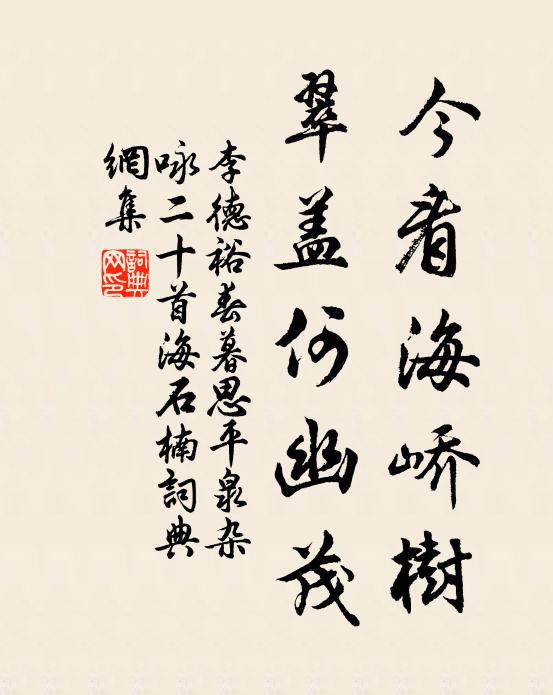 今看海峤樹
翠盖何幽茂
李德裕春暮思平泉杂
咏二十首海石楠詞典
網集
詞典网印